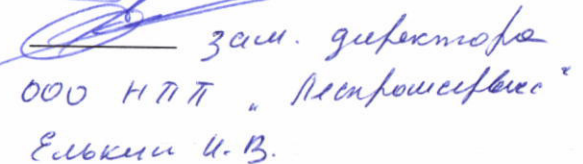 зам. директора
ООО НПП „Леспромсервис“
Елькин И.В.